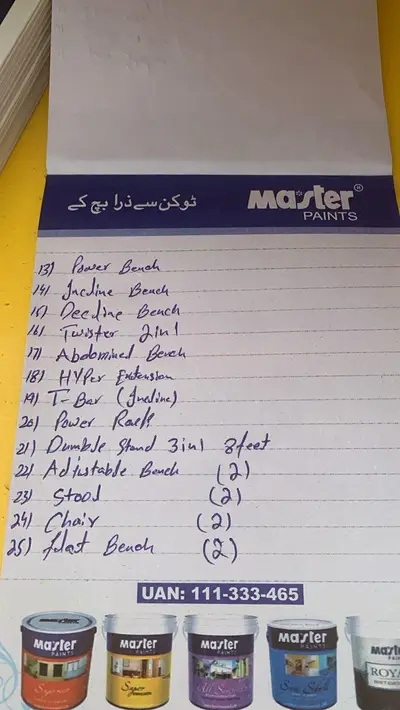 ٹوکن سے ذرا بچ کے
Master®
PAINTS
13) Power Bench
14) Incline Bench
15) Decline Bench
16) Twister 2in1
17) Abdominal Bench
18) HYPer Extension
19) T-Bar (Incline)
20) Power Rack
21) Dumble Stand 3in1 8feet
22) Adjustable Bench (2)
23) Stool (2)
24) Chair (2)
25) Flat Bench (2)
UAN: 111-333-465
Master Master Master Master Master
PAINTS PAINTS PAINTS PAINTS
Super
ROYA